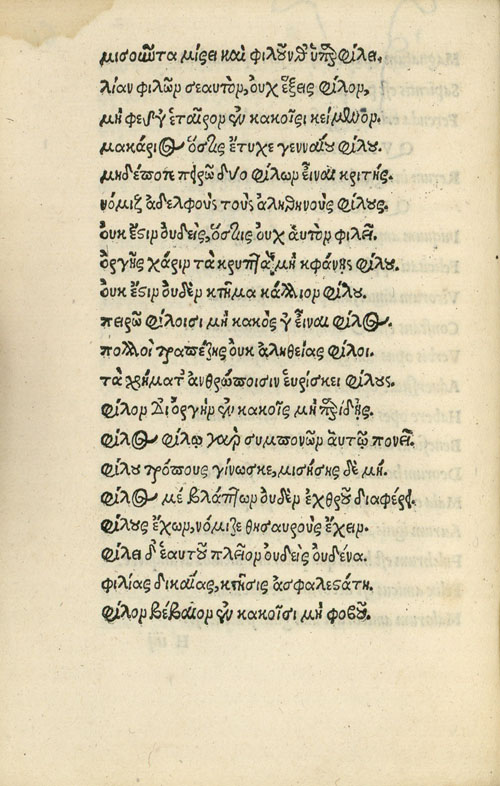 μισοῦντα μίσει καὶ φιλοῦνθ᾽ ὑπερφίλει.
λίαν φιλῶν σεαυτὸν, οὐχ ἕξεις φίλον,
μὴ φεῦγ᾽ ἑταῖρον ἐν κακοῖσι κείμενον.
μακάριος ὅστις ἔτυχε γενναίου φίλου.
μηδέποτε πειρῶ δύο φίλων εἶναι κριτής.
νόμιζ᾽ ἀδελφοὺς τοὺς ἀληθινοὺς φίλους.
οὐκ ἔστιν οὐδεὶς, ὅστις οὐχ αὑτὸν φιλεῖ.
ὀργῆς χάριν τὰ κρυπτὰ μὴ κφάνῃς φίλου.
οὐκ ἔστιν οὐδὲν κτῆμα κάλλιον φίλου.
πειρῶ φίλοισι μὴ κακὸς γ᾽ εἶναι φίλος.
πολλοὶ τραπέζης οὐκ ἀληθείας φίλοι.
τὰ χρήματ᾽ ἀνθρώποισιν εὑρίσκει φίλους.
φίλον δι᾽ ὀργὴν ἐν κακοῖς μὴ προδῇς.
φίλος φίλῳ γὰρ συμπονῶν αὑτῷ πονεῖ.
φίλου τρόπους γίνωσκε, μισήσῃς δὲ μή.
φίλος με βλάπτων οὐδὲν ἐχθροῦ διαφέρει.
φίλους ἔχων, νόμιζε θησαυροὺς ἔχειν.
φίλει δ᾽ ἑαυτοῦ πλεῖον οὐδεὶς οὐδένα.
φιλίας δικαίας, κτῆσις ἀσφαλεστάτη.
φίλον βέβαιον ἐν κακοῖσι μὴ φοβοῦ.